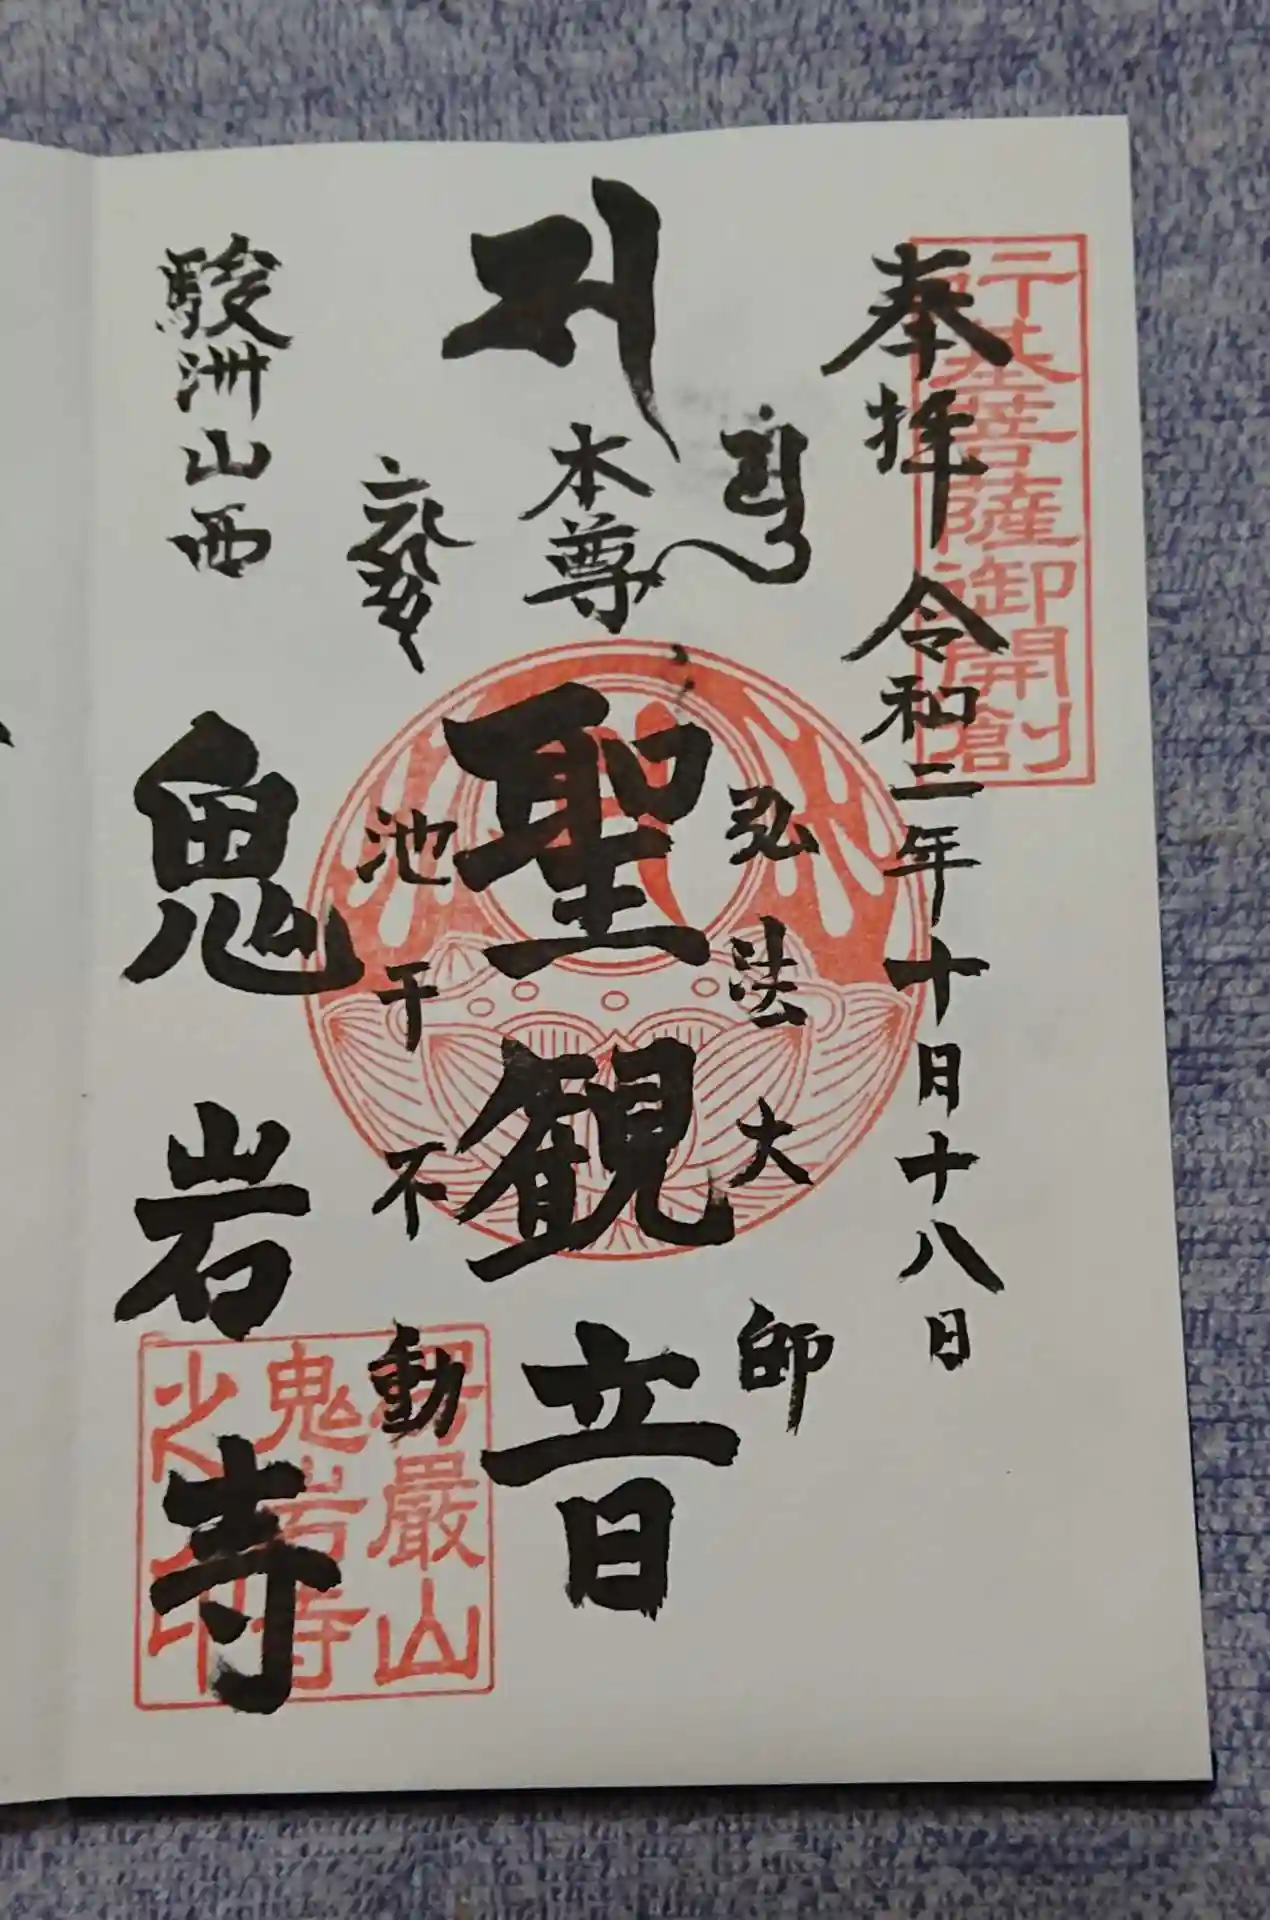 行基菩薩御開創
奉拝 令和二年十月十八日
弘法大師
本尊 聖観音
池干不動
駿洲山西 鬼岩寺
楞厳山
鬼岩寺
之印